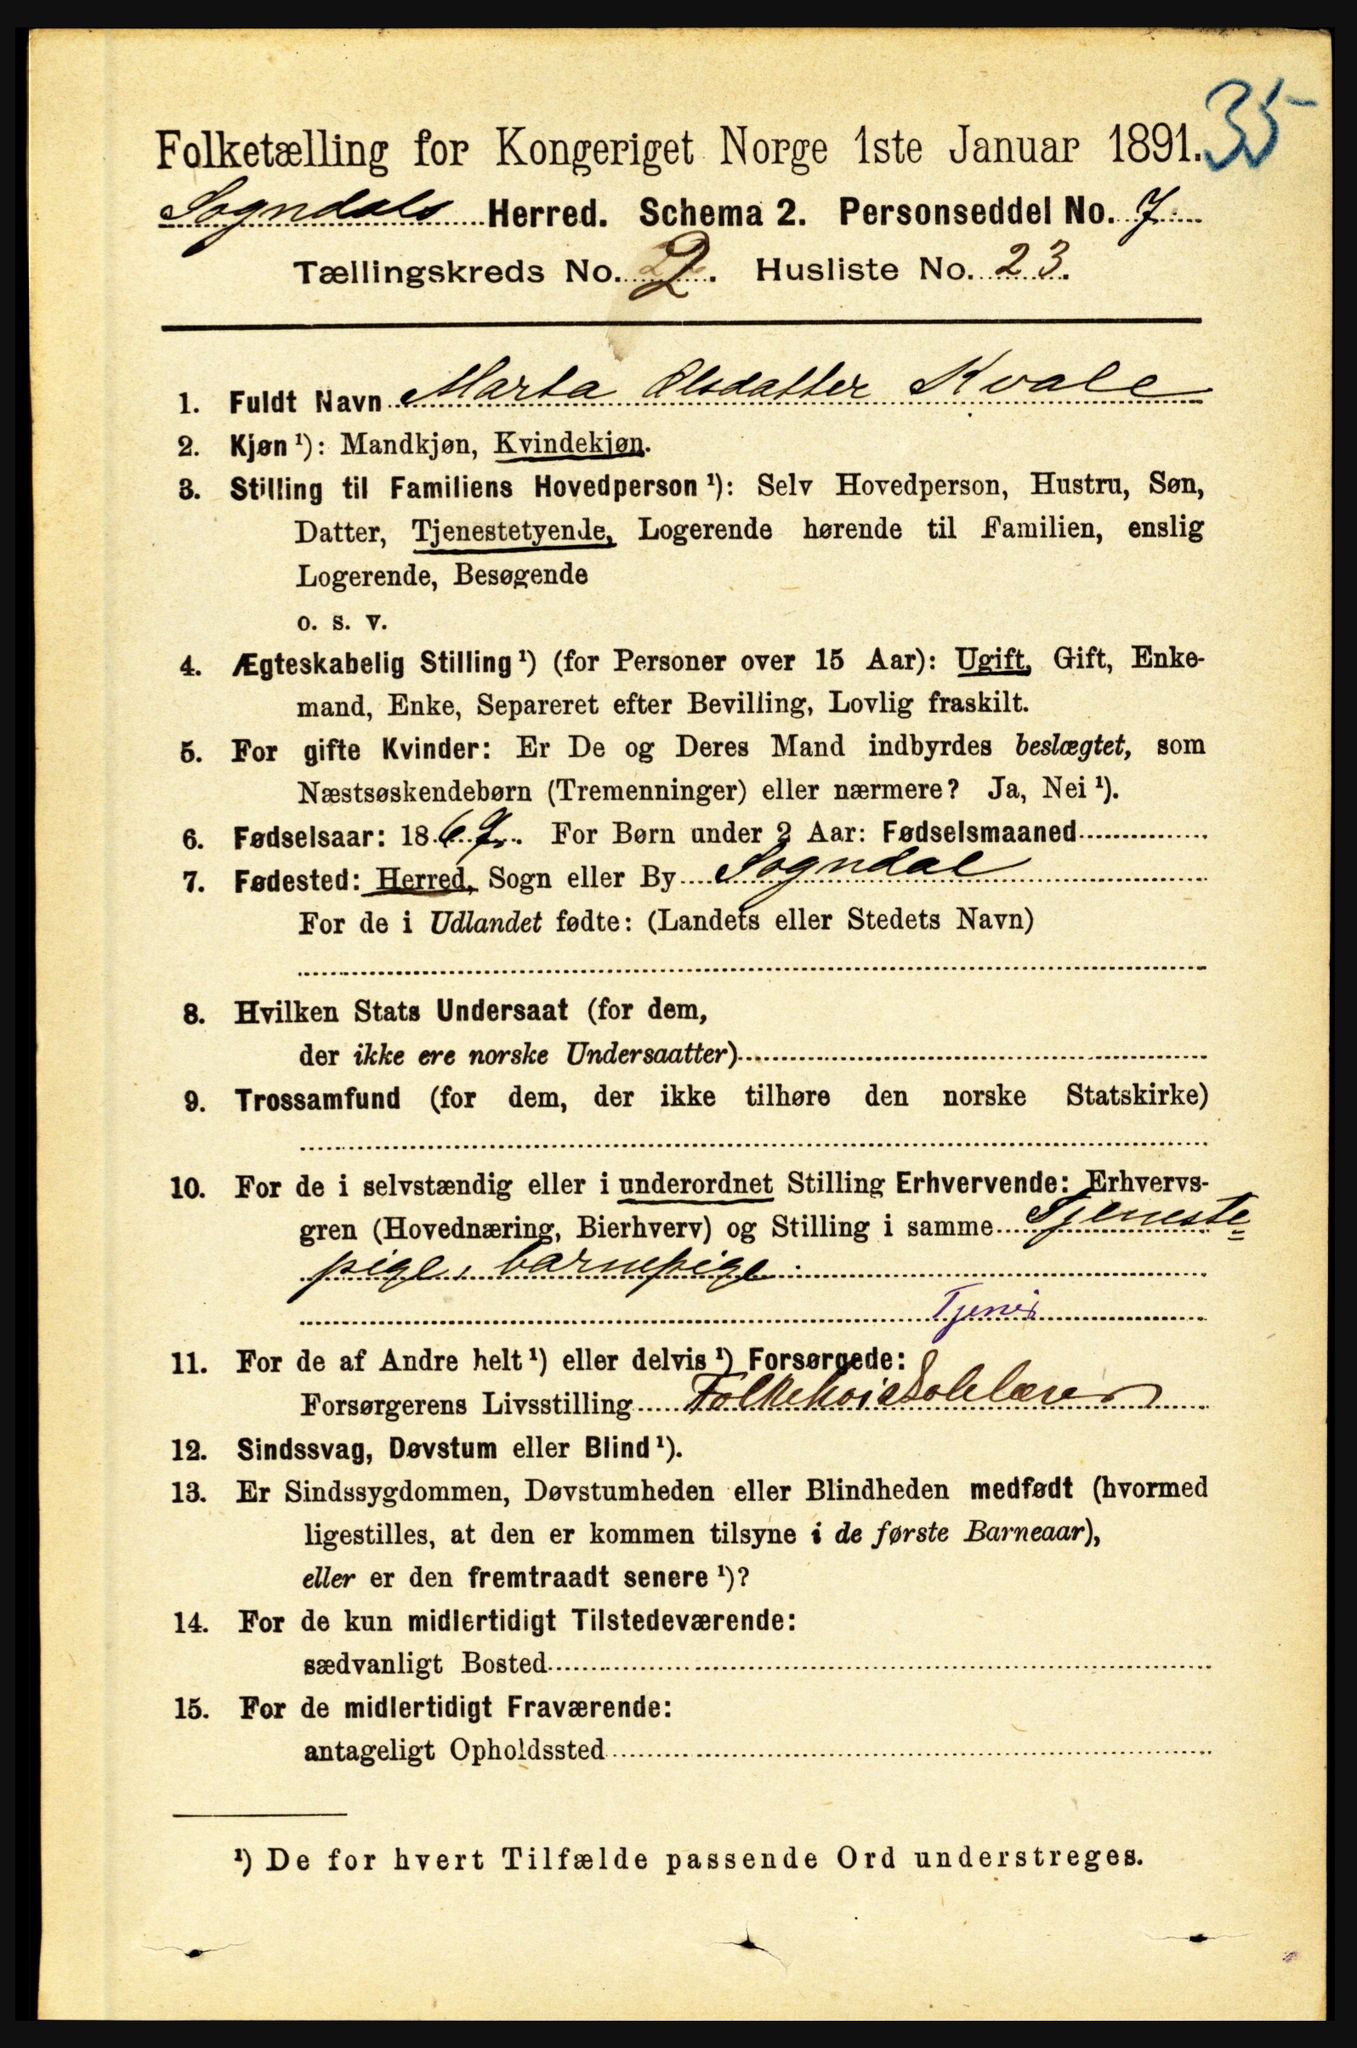 35
Folketælling for Kongeriget Norge 1ste Januar 1891.
Sogndals Herred. Schema 2. Personseddel No. 7.
Tællingskreds No. 2. Husliste No. 23.
1. Fuldt Navn Marta Olsdatter Kvale
2. Kjøn ¹): Mandkjøn, Kvindekjøn.
3. Stilling til Familiens Hovedperson ¹): Selv Hovedperson, Hustru, Søn,
Datter, Tjenestetyende, Logerende hørende til Familien, enslig
Logerende, Besøgende
o. s. v.
4. Ægteskabelig Stilling ¹) (for Personer over 15 Aar): Ugift, Gift, Enke-
mand, Enke, Separeret efter Bevilling, Lovlig fraskilt.
5. For gifte Kvinder: Er De og Deres Mand indbyrdes beslægtet, som
Næstsøskendebørn (Tremenninger) eller nærmere? Ja, Nei ¹).
6. Fødselsaar: 1867. For Børn under 2 Aar: Fødselsmaaned
7. Fødested: Herred, Sogn eller By Sogndal
For de i Udlandet fødte: (Landets eller Stedets Navn)
8. Hvilken Stats Undersaat (for dem,
der ikke ere norske Undersaatter)
9. Trossamfund (for dem, der ikke tilhøre den norske Statskirke)
10. For de i selvstændig eller i underordnet Stilling Erhvervende: Erhvervs-
gren (Hovednæring, Bierhverv) og Stilling i samme Tjeneste-
pige, barnepige.
11. For de af Andre helt ¹) eller delvis ¹) Forsørgede:
Forsørgerens Livsstilling
12. Sindssvag, Døvstum eller Blind ¹).
13. Er Sindssygdommen, Døvstumheden eller Blindheden medfødt (hvormed
ligestilles, at den er kommen tilsyne i de første Barneaar),
eller er den fremtraadt senere ¹)?
14. For de kun midlertidigt Tilstedeværende:
sædvanligt Bosted
15. For de midlertidigt Fraværende:
antageligt Opholdssted
¹) De for hvert Tilfælde passende Ord understreges.